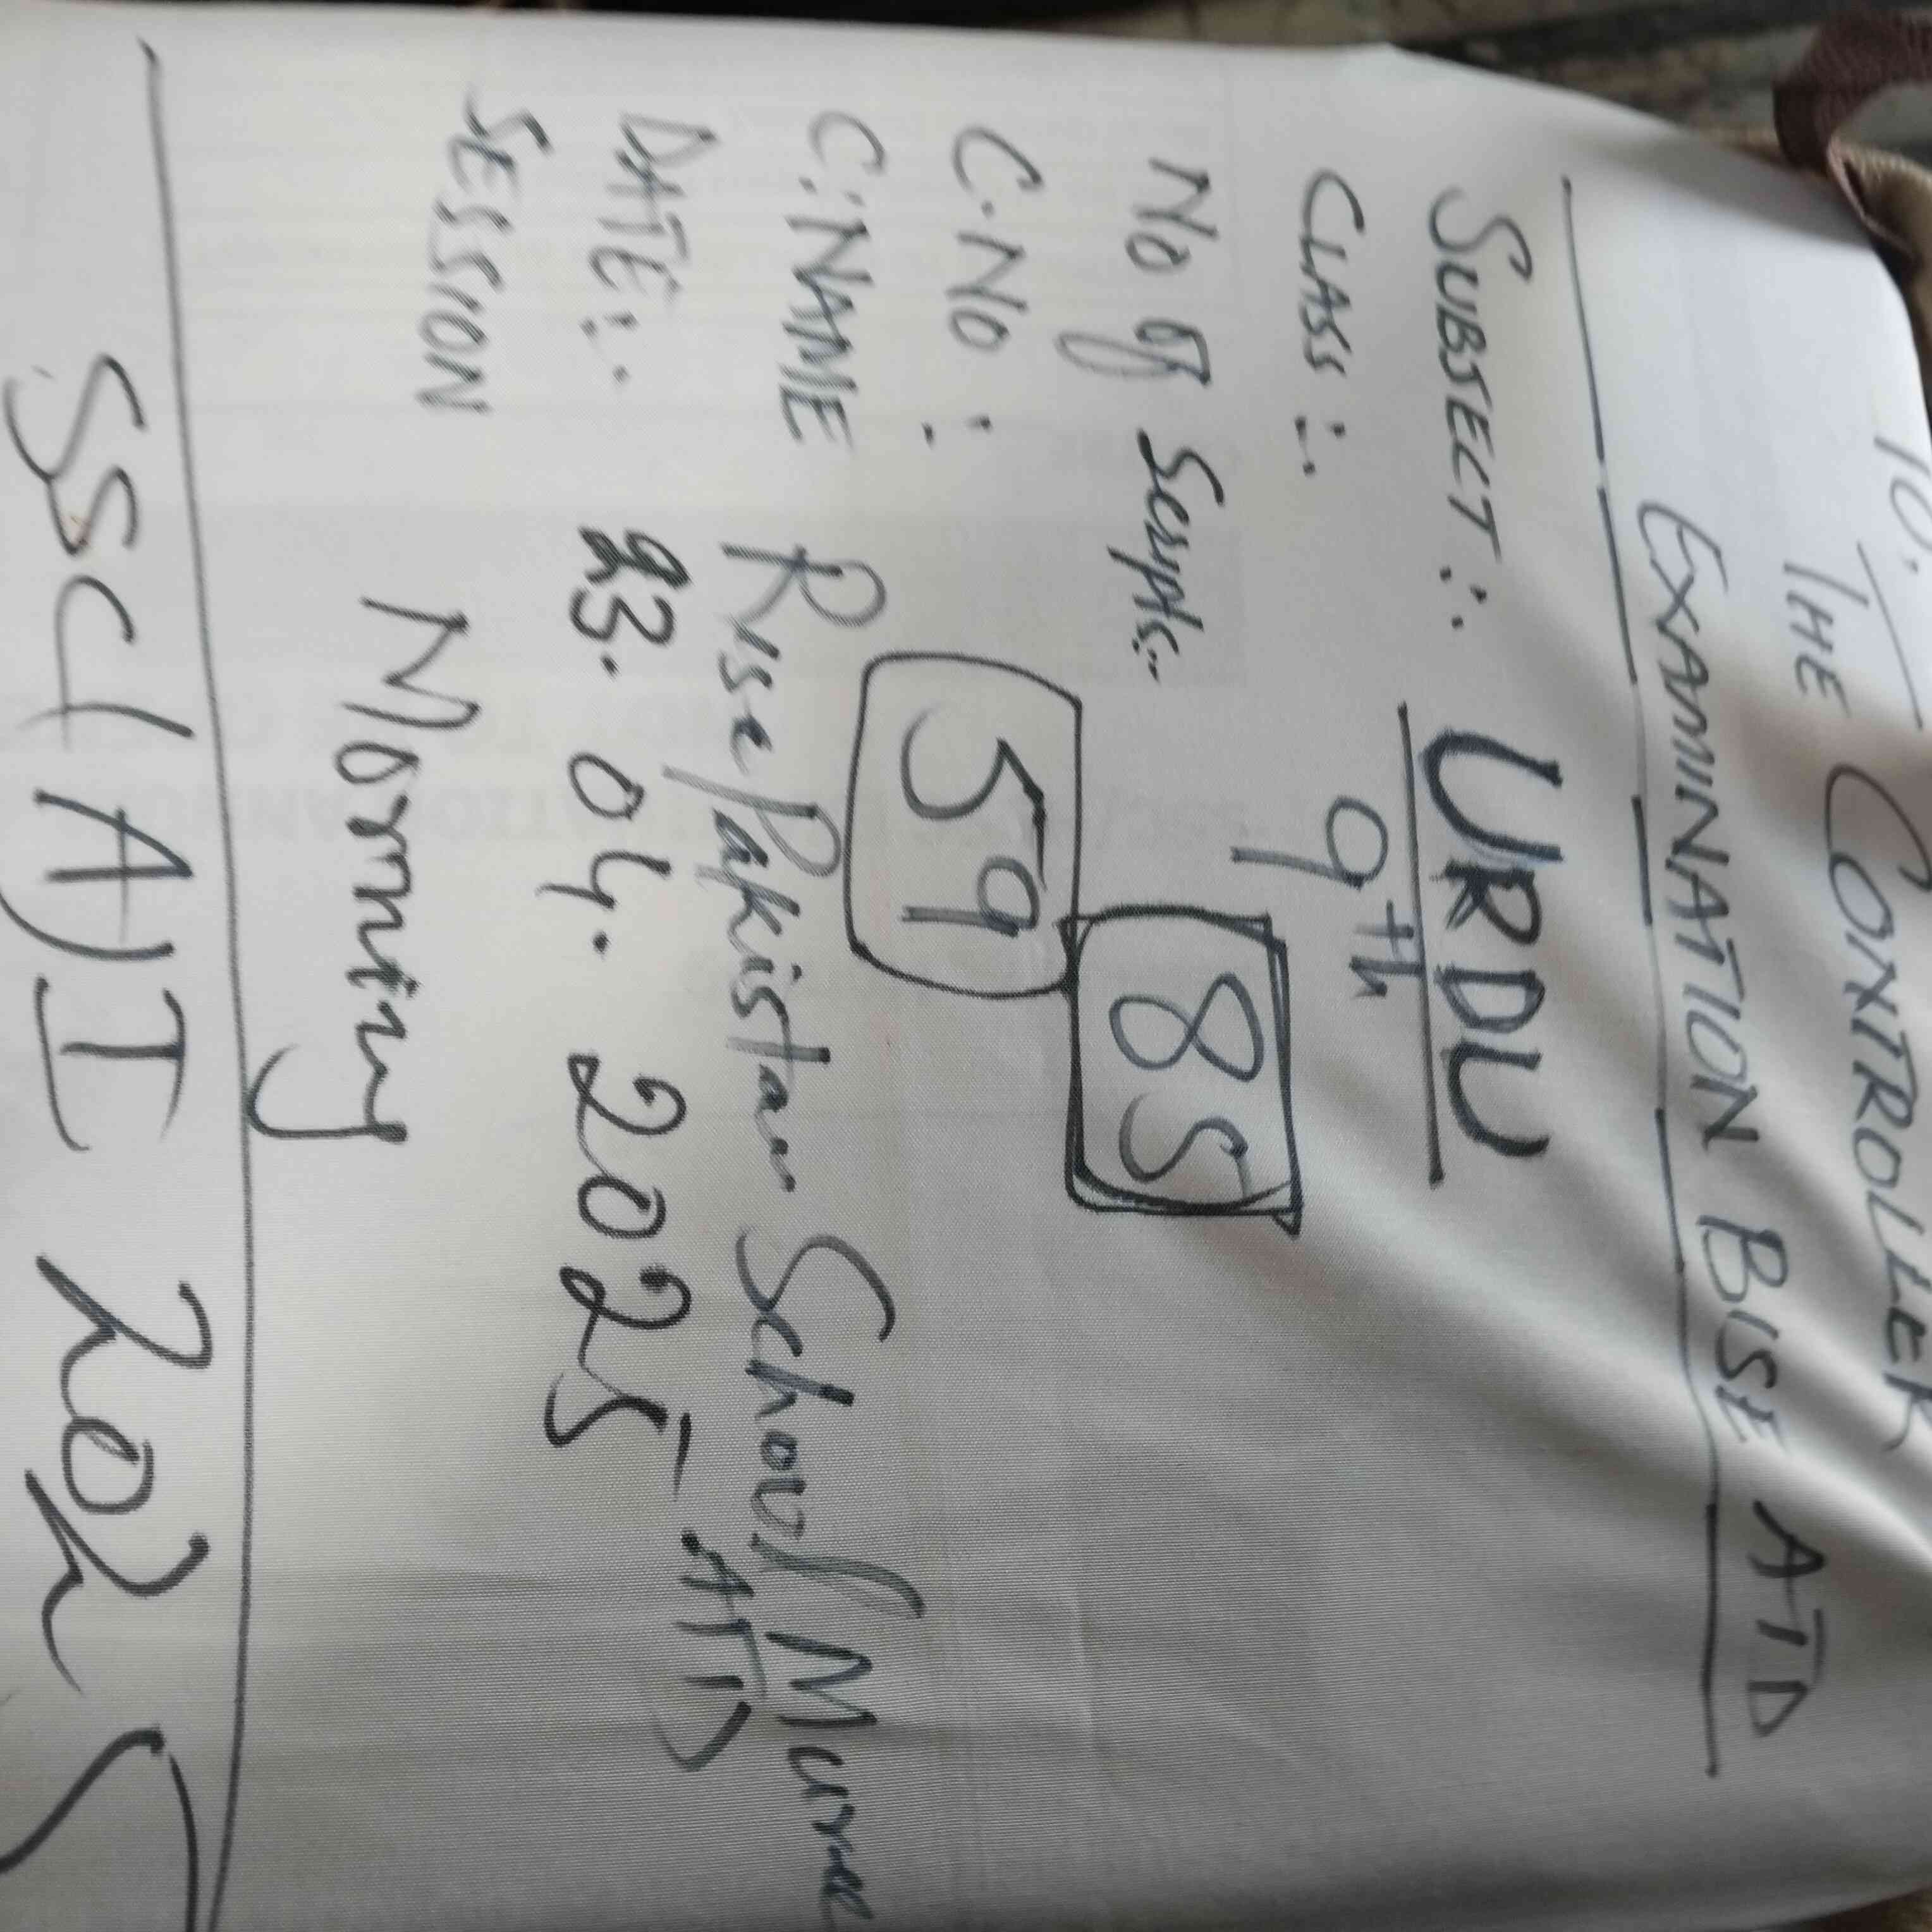 To.
THE CONTROLLER
EXAMINATION BISE ATD
SUBSECT :. URDU
CLASS :. 9th
No of Scripts:. 85
C.NO : 59
C:NAME Rise Pakistan School Murree
DATE :. 23. 04. 2025 ATD
SESSION Morning
SSC(A)I 2025